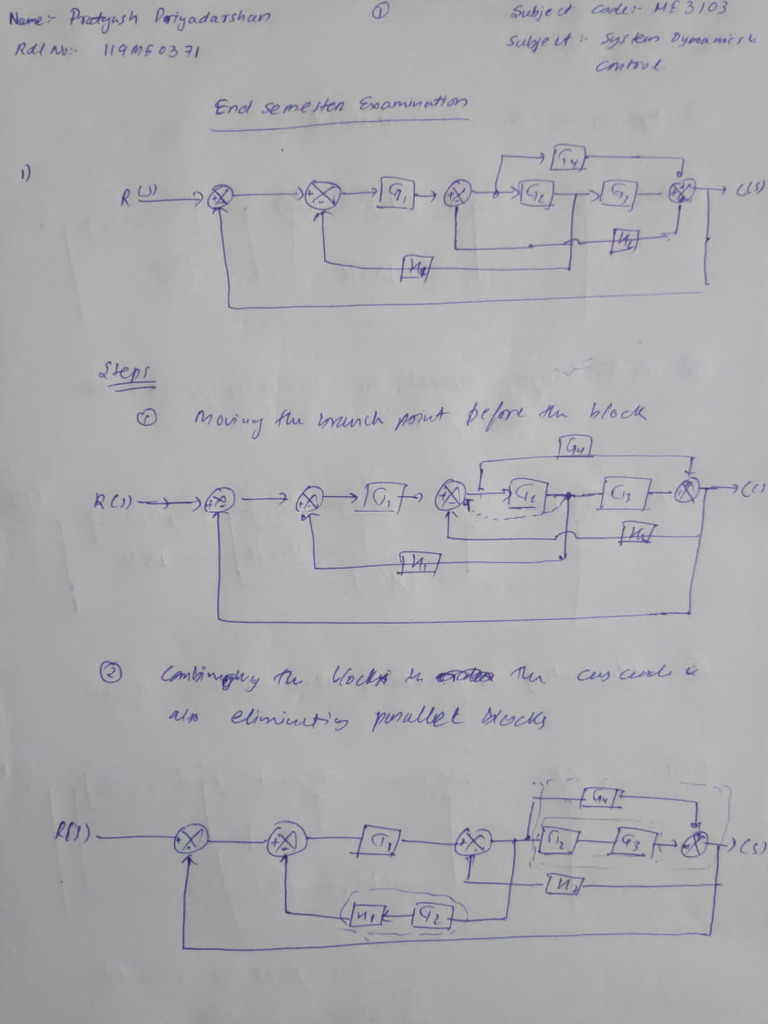 Name:- Pratyush Priyadarshan
①
Subject Code:- ME3103
Roll No:- 119ME0371
Subject:- System Dynamics &
Control.
End semester Examination
1)
G4
R(s) G1 G2 G3 C(s)
H2
H1
Steps
① Moving the branch point before the block
G4
R(s) G1 G2 G3 C(s)
H2
H1
② Combining the blocks in the cascade &
also eliminating parallel blocks
G4
R(s) G1 G2 G3 C(s)
H2
H1 G2